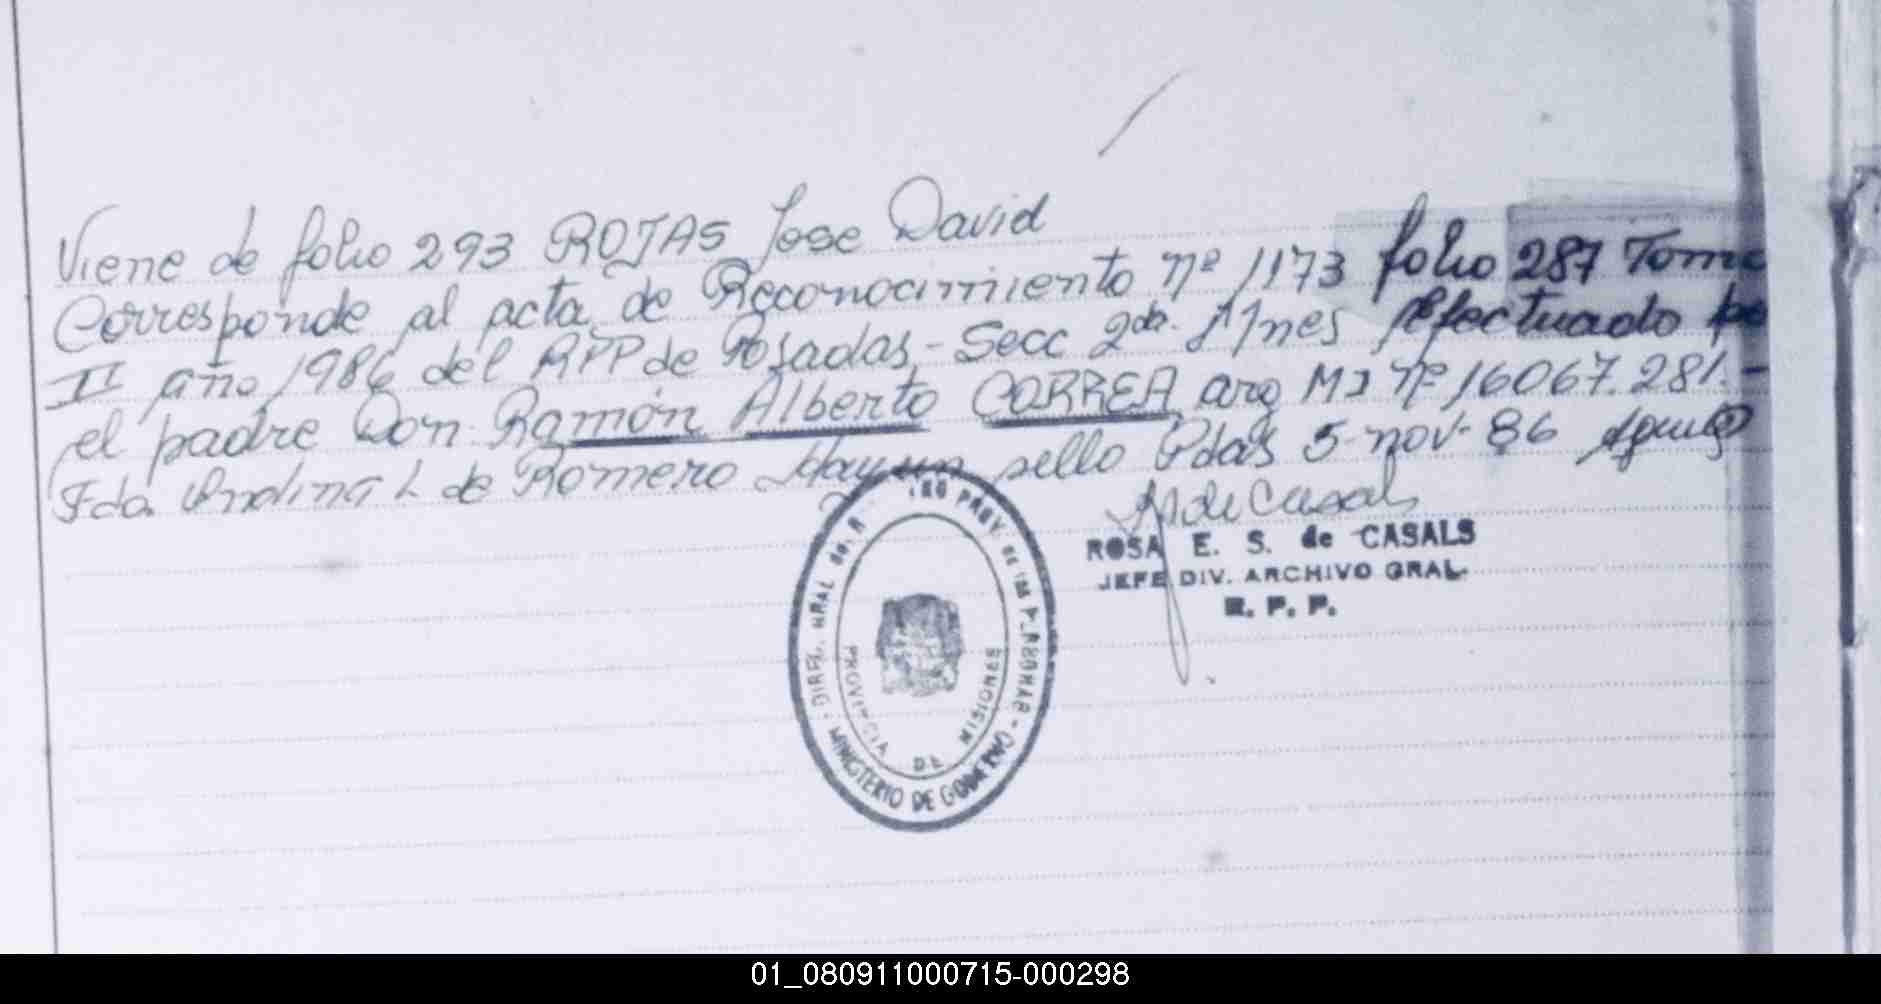 Viene de folio 293 ROJAS Jose David
Corresponde al acta de Reconocimiento Nº 1173 folio 287 Tomo
II año 1986 del RPP de Posadas - Secc 2da. Mnes efectuado po
el padre Don Ramón Alberto CORREA arg MI Nº 16067.281.-
Fda. Undina L de Romero Hay un sello Pdas 5-nov-86
R de Casals
ROSA E. S. de CASALS
JEFE DIV. ARCHIVO GRAL.
R. P. P.
PROV. de las PERSONAS - MINISTERIO DE GOBIERNO
PROVINCIA DE MISIONES
01_080911000715-000298